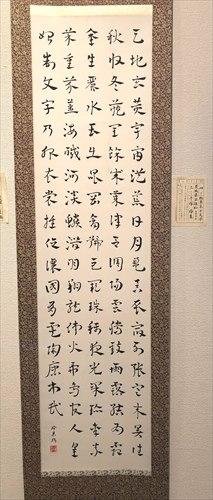 天地玄黄宇宙洪荒日月盈昃辰宿列張寒来暑往
秋収冬蔵閏餘成歳律呂調陽雲騰致雨露結為霜
金生麗水玉出崑岡剣号巨闕珠称夜光菓珍李柰
菜重芥薑海鹹河淡鱗潜羽翔龍師火帝鳥官人皇
始制文字乃服衣裳推位譲国有虞陶唐